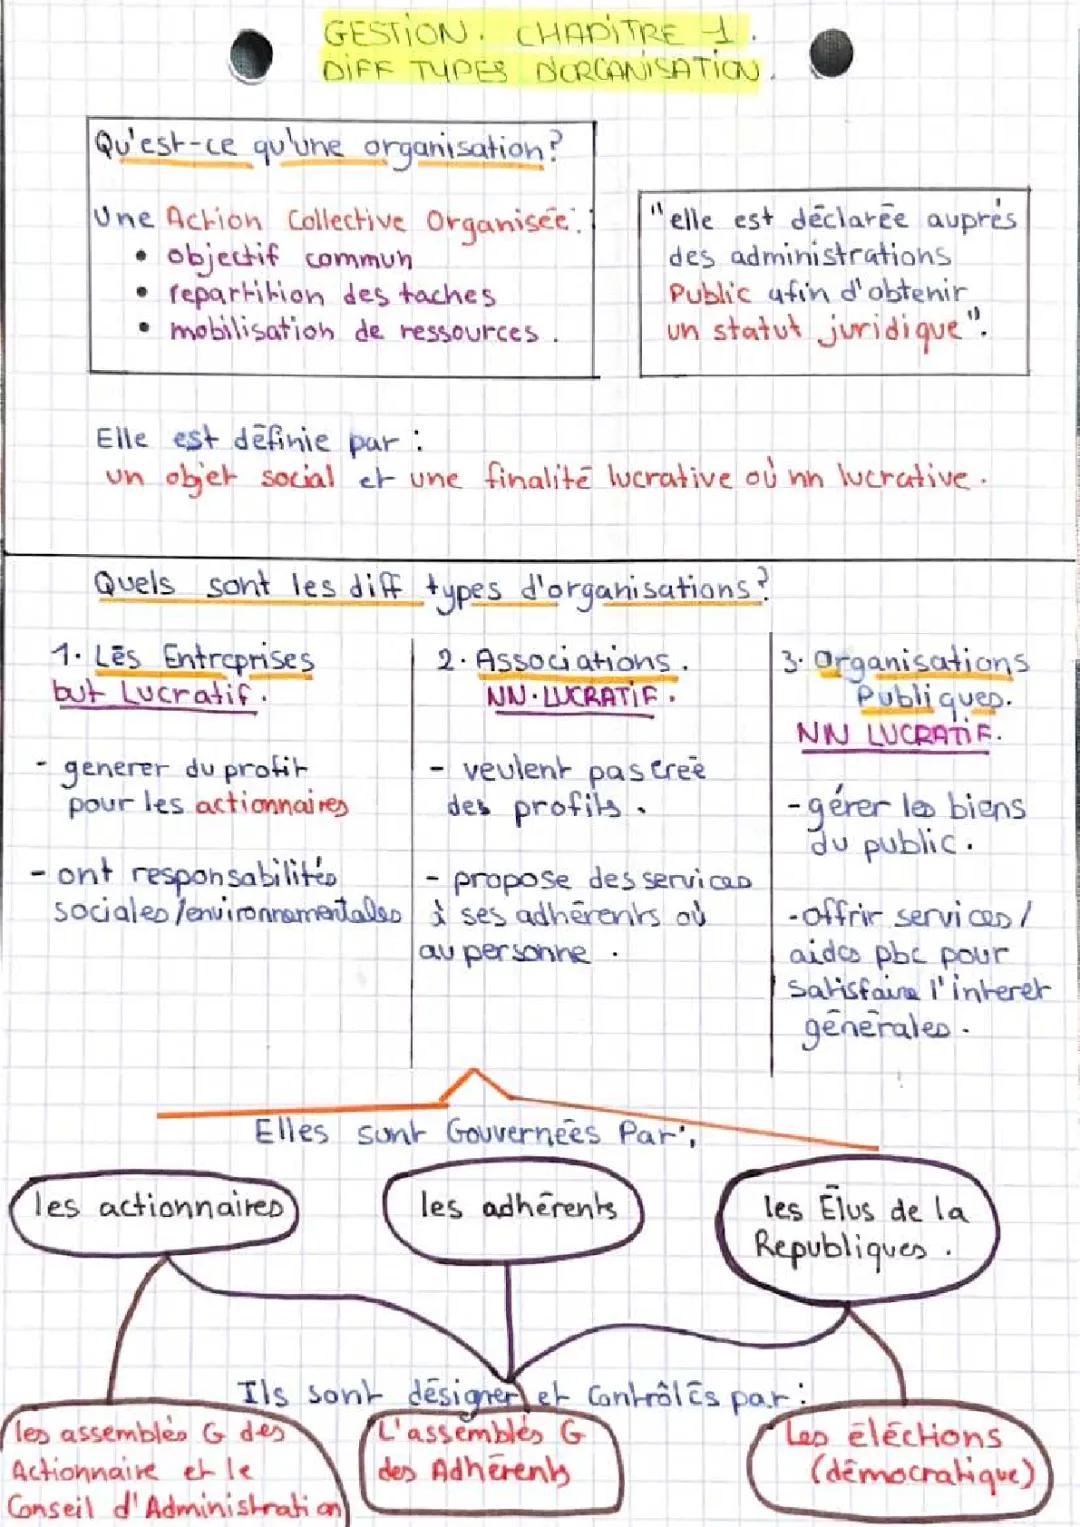 GESTION. CHAPITRE 1.
DIFF TYPES D'ORGANISATION.
Qu'est-ce qu'une organisation?
Une Action Collective Organisée:
• objectif commun
• repartition des taches
• mobilisation de ressources.
"elle est déclarée auprès
des administrations
Public afin d'obtenir
un statut juridique".
Elle est définie par :
un objet social et une finalité lucrative où nn lucrative.
Quels sont les diff types d'organisations?
1. Lēs Entreprises
but Lucratif.
- generer du profit
pour les actionnaires
- ont responsabilités
sociales/environnementales
2. Associations.
NN. LUCRATIF.
- veulent pas creé
des profits.
- propose des services
à ses adhérents où
au personne.
3. Organisations
Publiques.
NN LUCRATIF.
- gérer les biens
du public.
- offrir services/
aides pbc pour
satisfaire l'interet
générales.
Elles sont Gouvernées Par:
les actionnaires
les adhérents
les Élus de la
Republiques.
Ils sont désigner et Contrôlés par:
les assemblés G des
Actionnaire et le
Conseil d'Administration
L'assemblés G
des Adhérents
Les élections
(démocratique)